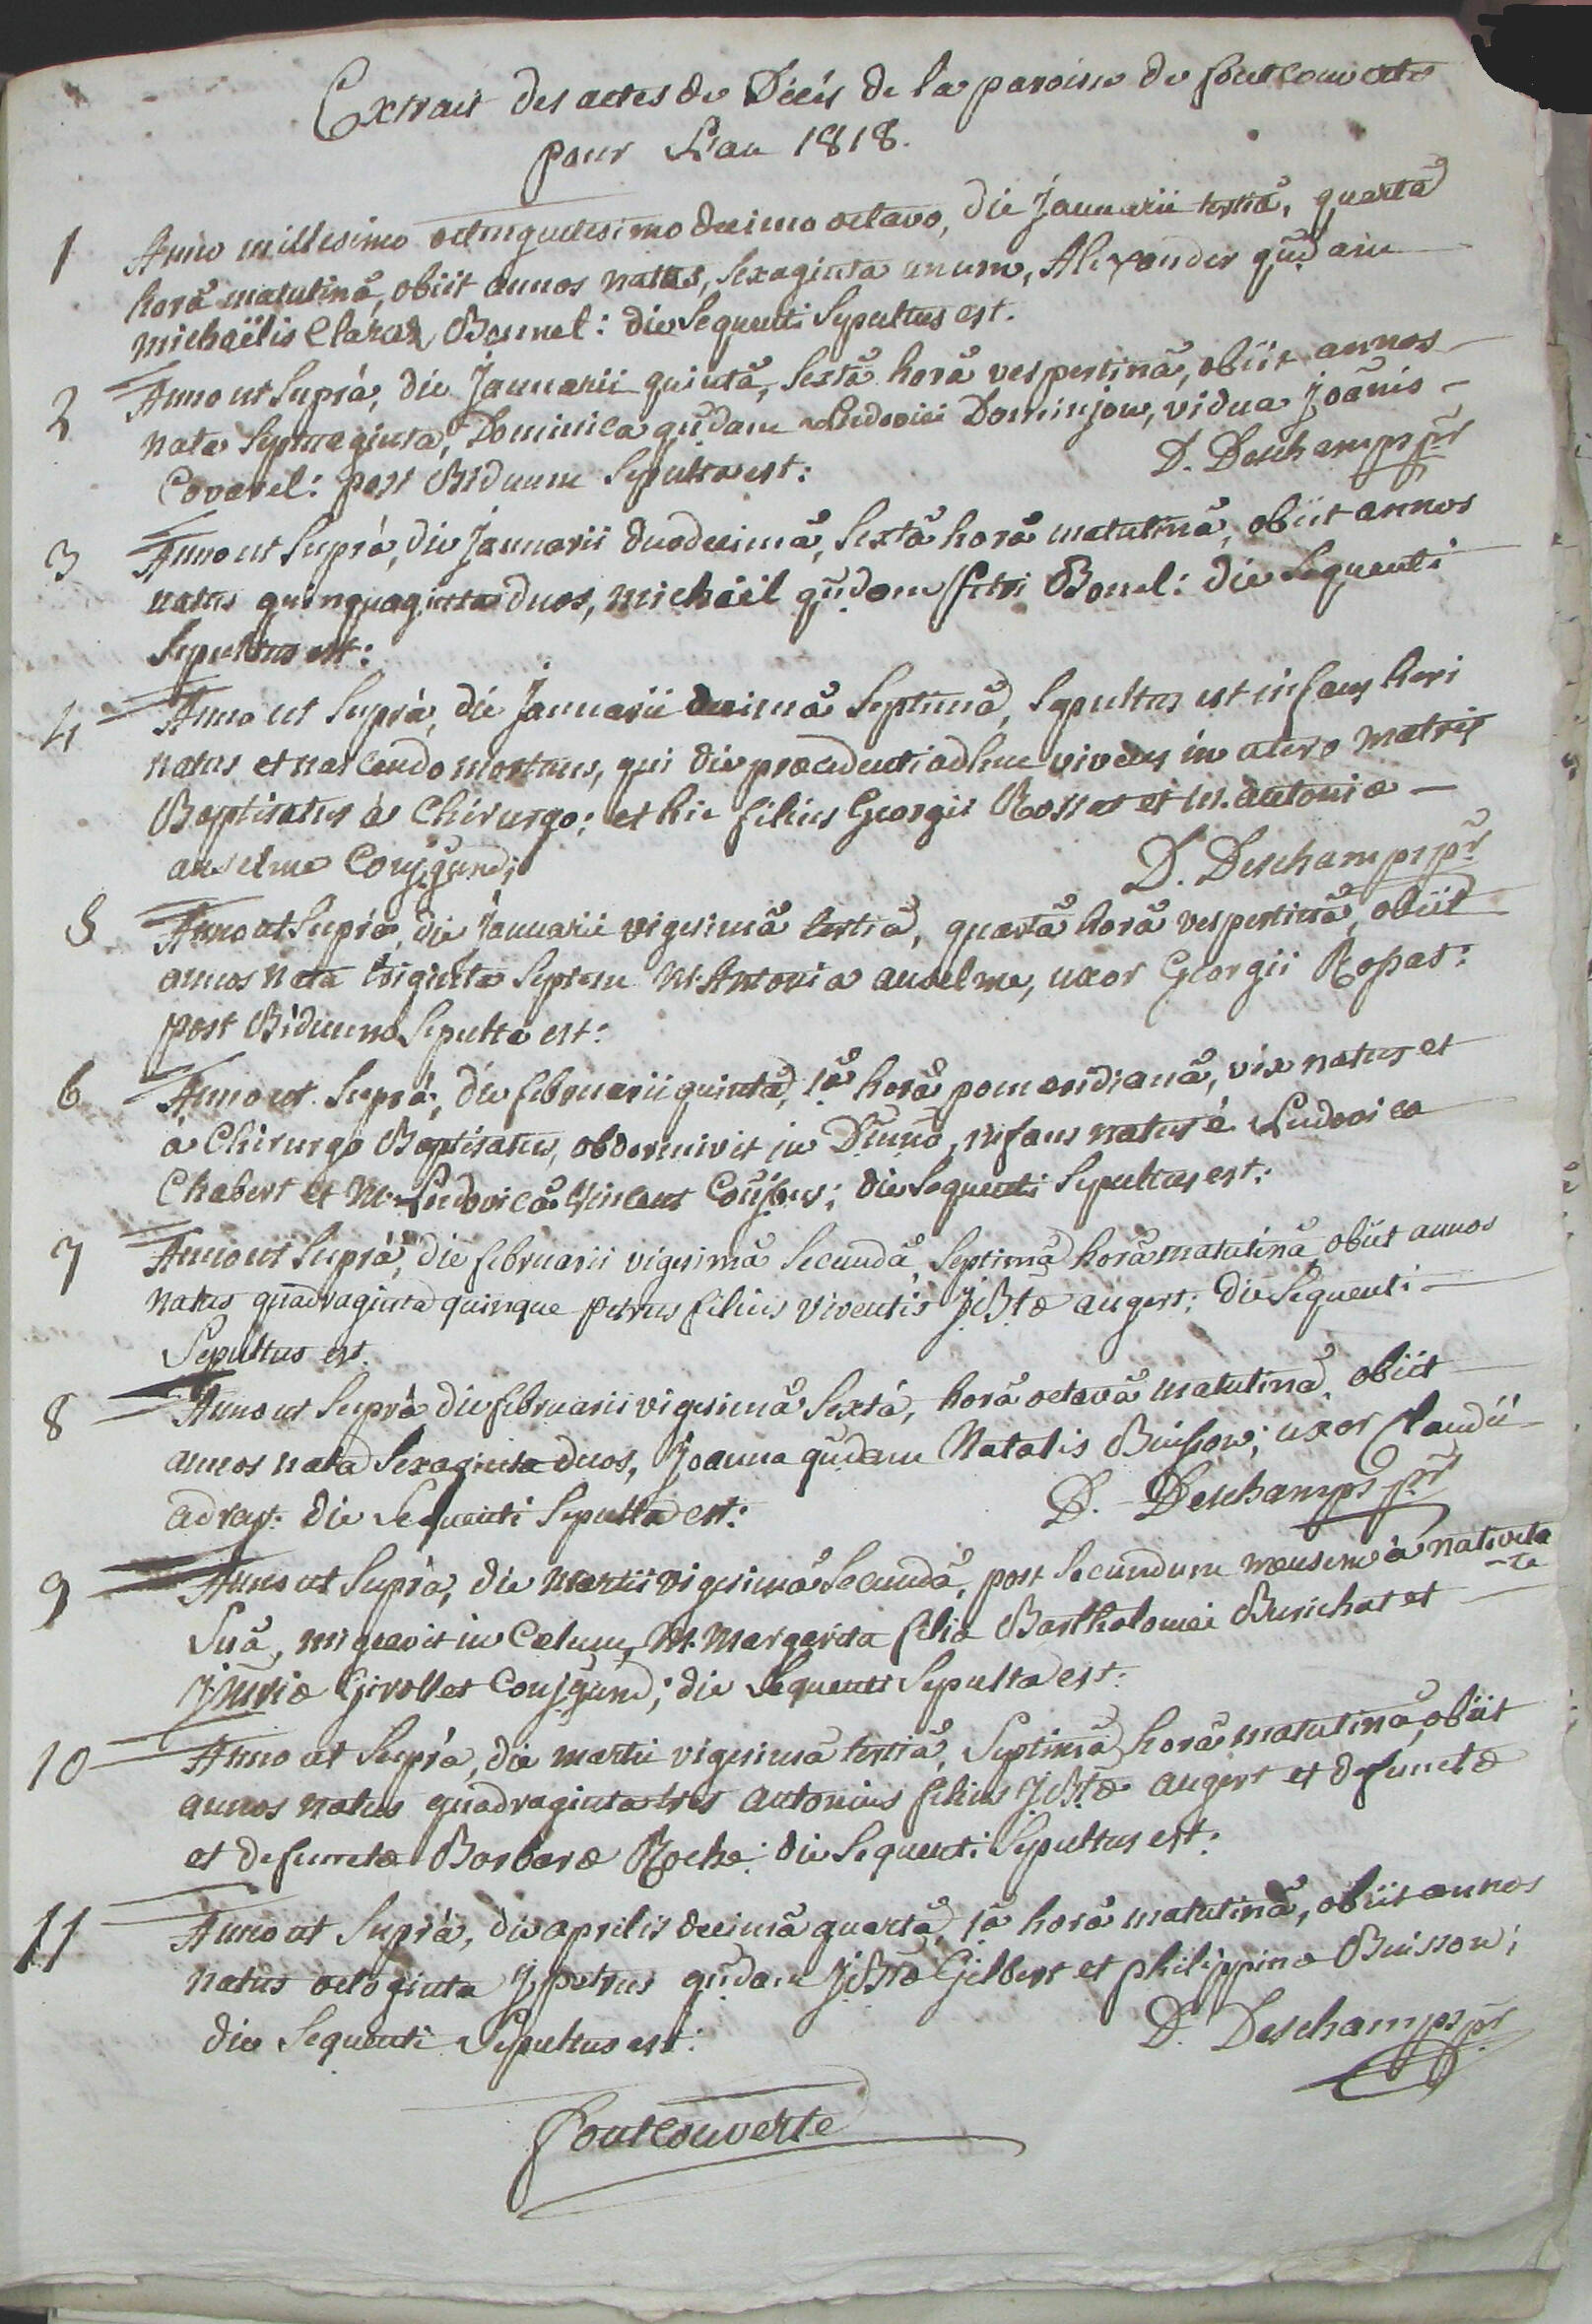 Extrait des actes de Décès de la paroisse de fontcouverte
pour L'an 1818.
1 Anno millesimo octingentesimo decimo octavo, die Januarii tertiâ, quartâ
horâ matutinâ, obiit annos natus, sexaginta unum, Alexander qũdam
michaëlis Claraz Bonnel: die Sequenti Sepultus est.
2 Anno ut Suprà, die Januarii quintâ, Sextâ horâ vespertinâ, obiit annos
nata Septuaginta, Dominica qũdam Ludovici Dominjon, vidua Joãnis
Covarel: post Biduum Sepulta est:
D. Deschamps pr̃
3 Anno ut Suprà, die Januarii duodecimâ, Sextâ horâ matutinâ, obiit annos
natus quinquaginta duos, michaël qũdam petri Bonel: die Sequenti
Sepultus est:
4 Anno ut Suprà, die Januarii decimâ Septimâ, Sepultus est infans heri
natus et nascendo mortuus, qui die præcedenti adhuc vivens in utero matris
Baptisatus à Chirurgo; et hic filius Georgii Rossat et M. antoniæ
anselme Conjgum̃;
D. Deschamps pr̃
5 Anno ut Suprà, die Januarii vigesimâ tertiâ, quartâ horâ vespertinâ, obiit
annos nata triginta Septem M. Antonia anselme, uxor Georgii Rossat:
post Biduum Sepulta est:
6 Anno ut Suprà, die februarii quintâ, 1â horâ pomeridianâ, vix natus et
à Chirurgo Baptisatus, obdormivit in Dũno, infans natus è Ludovico
Chabert et M. Ludovicâ Vincent Conjbus; die Sequenti Sepultus est:
7 Anno ut Suprà, die februarii vigesimâ Secundâ, Septimâ horâ matutinâ obiit annos
natus quadraginta quinque petrus filius viventis J.Btæ augert; die Sequenti
Sepultus est.
8 Anno ut Suprà die februarii vigesimâ Sextâ, horâ octavâ matutinâ, obiit
annos nata Sexaginta duos, Joanna qũdam Natalis Buisson; uxor Claudii
adray: die Sequenti Sepulta est:
D. Deschamps pr̃
9 Anno ut Suprà, die martii vigesimâ Secundâ, post Secundum mensem à nativita
-te
Suâ, migravit in Cælum, M. Margarita filia Bartholomei Burichat et
Girollet Conjgum̃; die Sequenti Sepulta est:
10 Anno ut Suprà, die martii vigesimâ tertiâ, Septimâ horâ matutinâ, obiit
annos natus quadraginta tres antonius filius J.Btæ augert et defunctæ
et defunctæ Barbaræ Roche: die Sequenti Sepultus est:
11 Anno ut Suprà, die aprilis decimâ quartâ, 1â horâ matutinâ, obiit annos
natus octoginta J petrus qũdam J.Btæ Gilbert et philippinæ Buisson;
die Sequenti Sepultus est:
D. Deschamps pr̃
fontcouverte